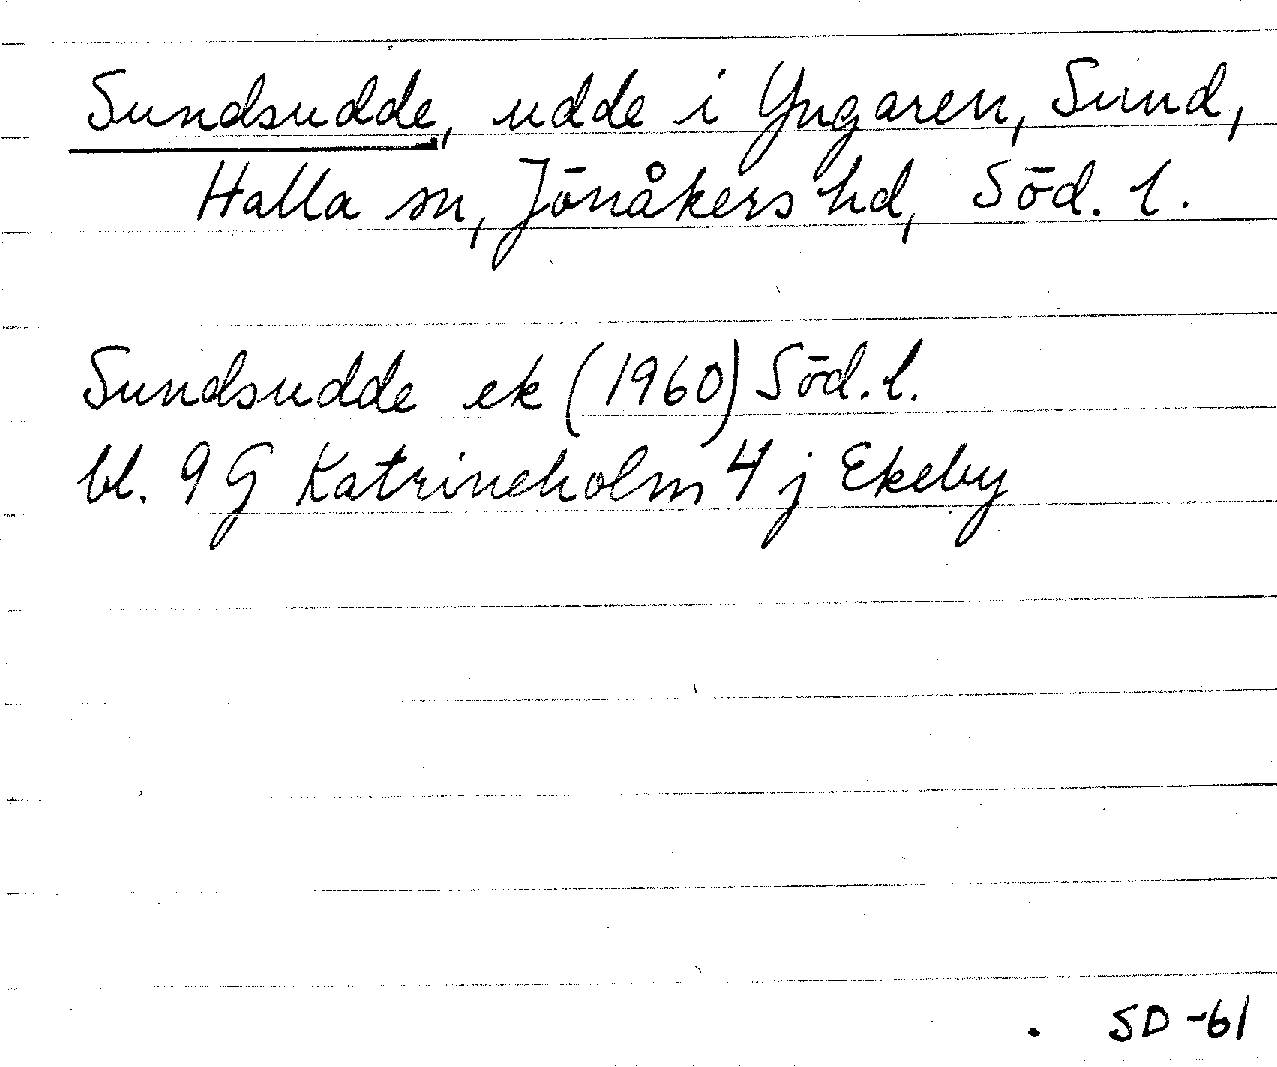 Sundsudde, udde i Yngaren, Sund,
Halla sn, Jönåkers hd, Söd. l.
Sundsudde ek (1960) Söd. l.
bl. 9 G Katrineholm 4 j Ekeby
SD -61